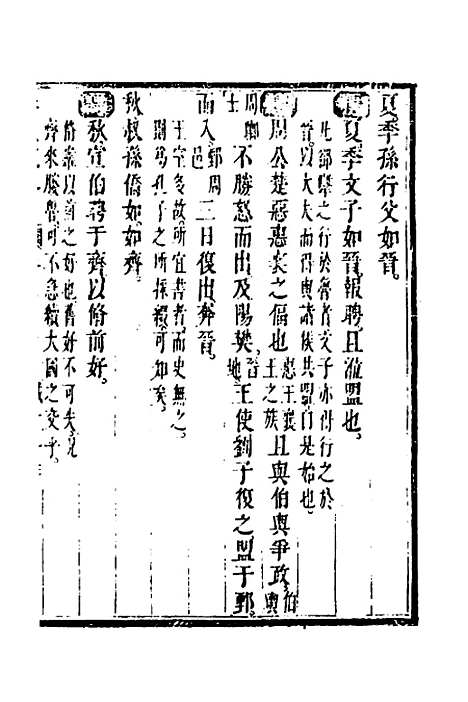 夏季孫行父如晉。
傳夏季文子如晉報聘且涖盟也。
此郤犨之行於魯者文子亦得行之於
晉。以大夫而得與諸侯共盟自是始也。
周公楚惡惠襄之偪也惠王襄王之族且與伯輿爭政伯輿
周卿士不勝怒而出及陽樊晉地王使劉子復之盟于鄄。
而入鄄周邑三日復出奔晉。
王室多故所宜書者而史無之。
則為孔子之所採綴可知矣。
秋叔孫僑如如齊。
秋宣伯聘于齊以脩前好。
脩鞌以前之好也舊好不可失
齊來勝魯可不急續大國之交乎。